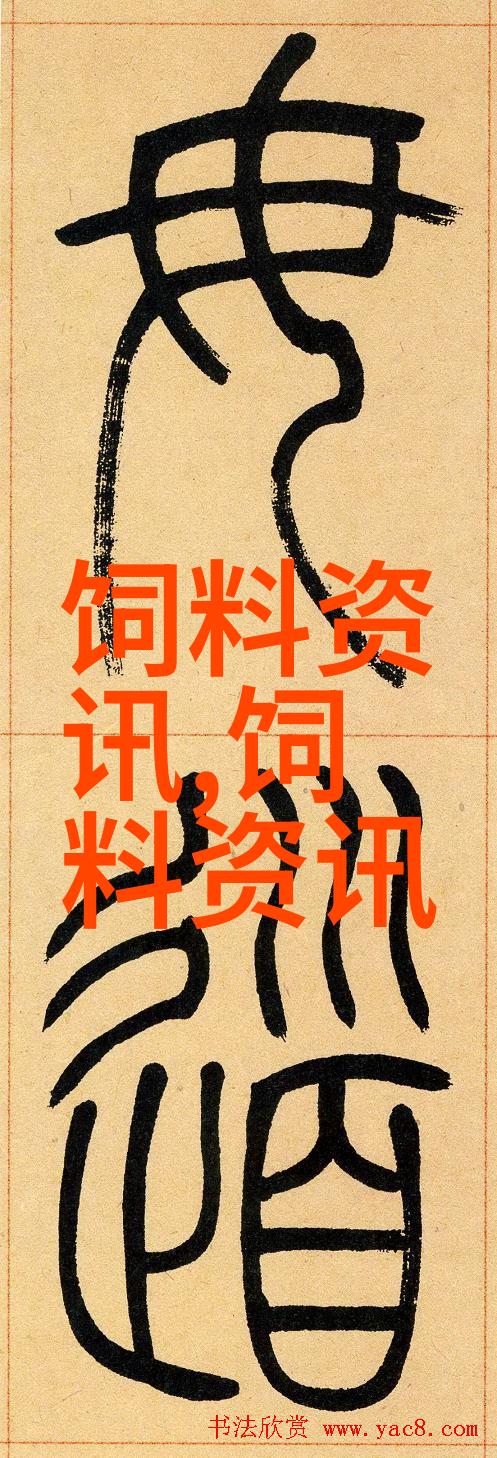 毋
饲料资
讯,饲
料资讯
道
书法欣赏 www.yac8.com